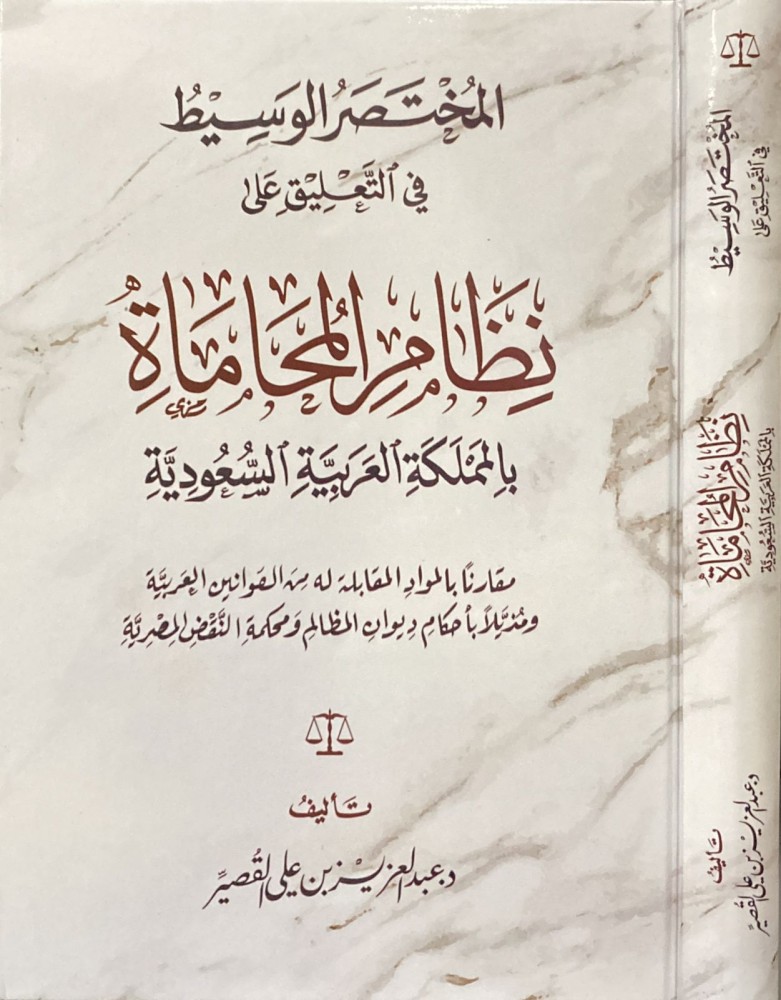 المُخْتَصَرُ الوَسِيْطُ
في التَّعْلِيْقِ عَلىٰ
نِظَامِ المُحَامَاةُ
بِالمَمْلَكَةِ العَرَبِيَّةِ السُّعُودِيَّةِ
مقارنًا بالموادِ المقابلة له مِنَ القوانين العربيَّة
ومُذيَّلاً بأحكامِ ديوانِ المظالمِ ومحكمةِ النَّقضِ المِصْريَّةِ
تأليفُ
د. عبد العزيز بن علي القُصيِّر
المُخْتَصَرُ الوَسِيْطُ
في التَّعْلِيْقِ عَلىٰ
نِظَامِ المُحَامَاةُ
بِالمَمْلَكَةِ العَرَبِيَّةِ السُّعُودِيَّةِ
تأليفُ
د. عبد العزيز بن علي القُصيِّر